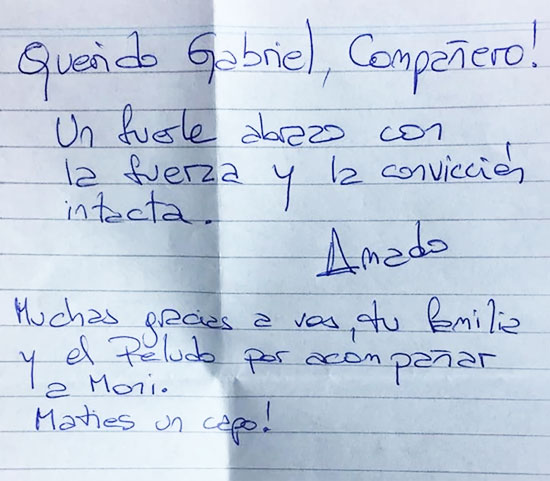 Querido Gabriel, Compañero!
Un fuerte abrazo con
la fuerza y la convicción
intacta.
Amado
Muchas gracias a vos, tu familia
y el Peludo por acompañar
a Moni.
Maties un capo!